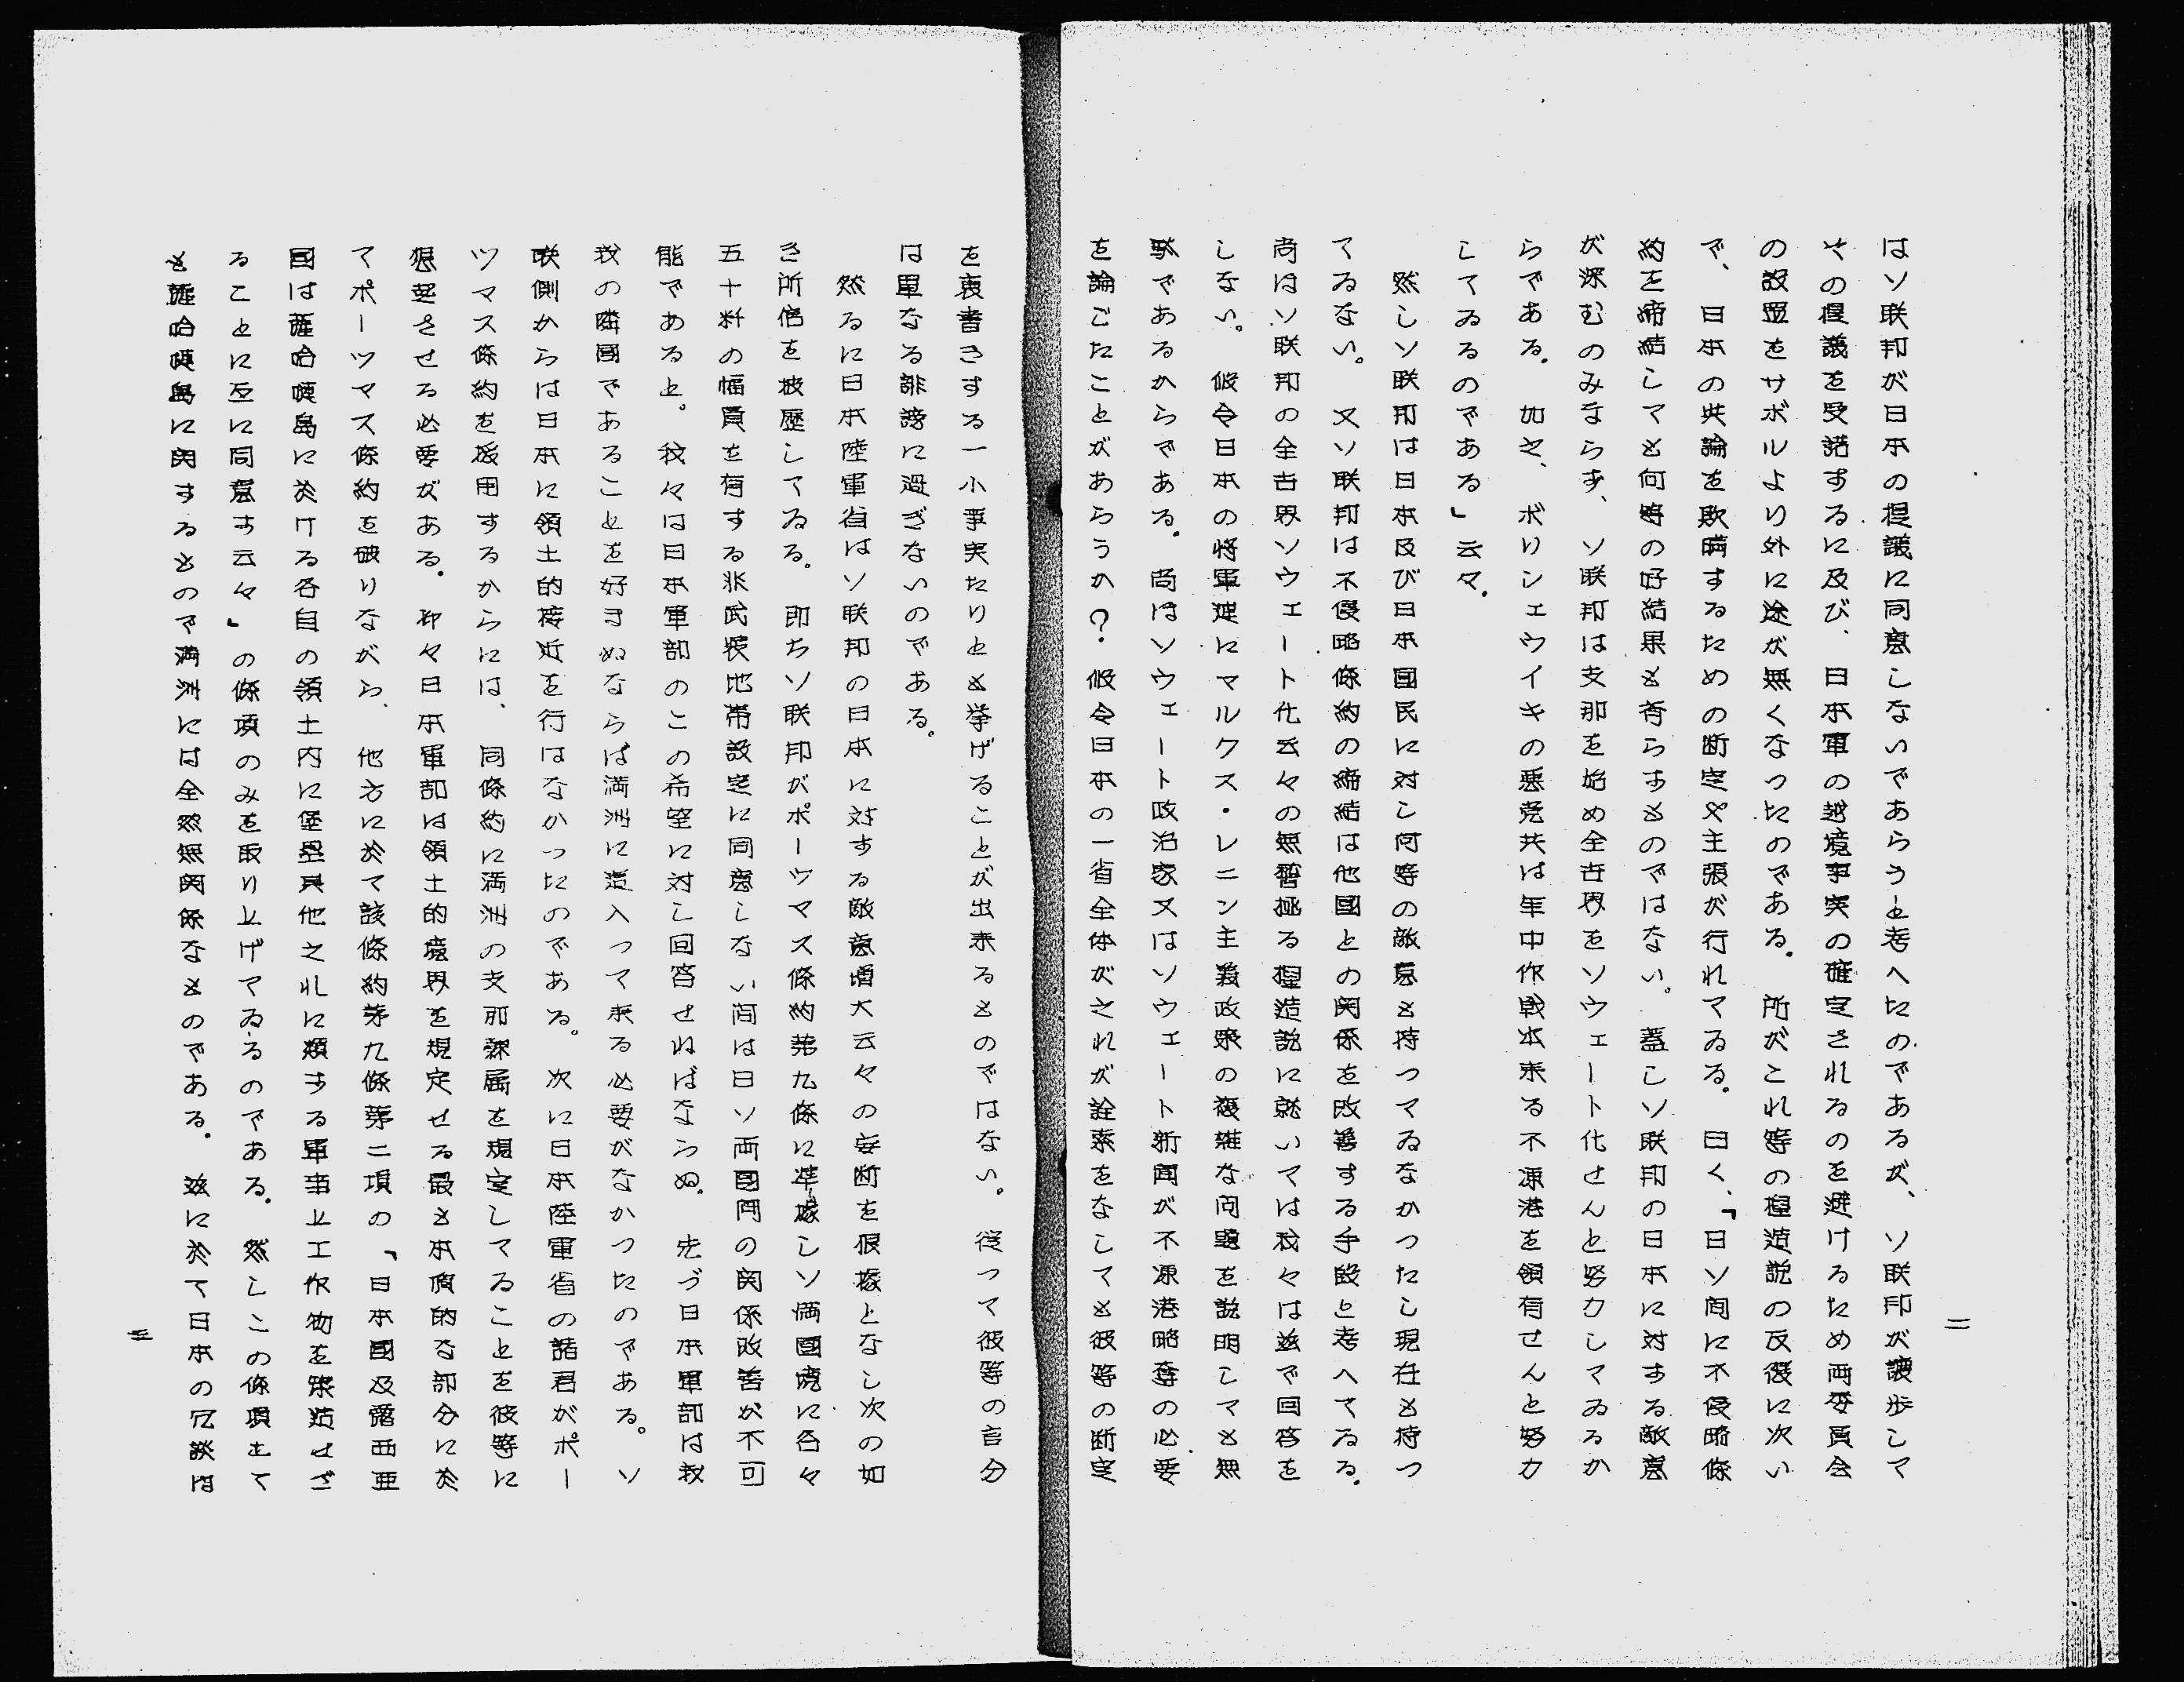 二
はソ联邦が日本の提議に同意しないであらうと考へたのであるが、ソ联邦が讓歩して
その提議を受諾するに及び、日本軍の越境事実の確定されるのを避けるため両委員会
の設置をサボルより外に途が無くなつたのである。所がこれ等の揑造説の反復に次い
で、日本の與論を欺瞞するための断定や主張が行れてゐる。曰く、「日ソ间に不侵略條
約を締結しても何等の好結果も斉らすものではない。蓋しソ联邦の日本に対する敵意
が深むのみならす、ソ联邦は支那を始め全古界をソウェート化せんと努力してゐるか
らである。加之、ボリシェウイキの悪党共は年中作戦本来る不凍港を領有せんと努力
してゐるのである」云々．
然しソ联邦は日本及び日本國民に対し何等の敵意も持つてゐなかつたし現在も持つ
てゐない。又ソ联邦は不侵略條約の締結は他國との関係を改善する手段と考へてゐる．
尚はソ联邦の全古界ソウェート化云々の無智極る揑造説に就いては我々は茲で回答を
しない。假令日本の将軍連にマルクス・レニン主義政策の複雑な问題を説明しても無
駄であるからである。尚はソウェート政治家又はソウェート新聞が不凍港略奪の必要
を論ごたことがあらうか？．假令日本の一省全体が之れが詮索をなしても彼等の断定
を裏書きする一小事実たりとも挙げることが出来るものではない。從つて彼等の言分
は單なる誹謗に過ぎないのである。
然るに日本陸軍省はソ联邦の日本に対する敵意増大云々の妄断を根據となし次の如
き所信を披歴してゐる。即ちソ联邦がポーツマス條約苐九條に準據しソ滿國境に各々
五十粁の幅員を有する非武裝地帯設定に同意しない间は日ソ両國间の関係改善が不可
能である上。我々は日本軍部のこの希望に対し回答せねばならぬ。先づ日本軍部は我
我の隣國であることを好まぬならば満洲に這入つて来る必要がなかつたのである。ソ
联側からは日本に領土的接近を行はなかつたのである。次に日本陸軍省の諸君がポー
ツマス條約を援用するからには、同條約に満洲の支那隷属を規定してることを彼等に
想起させる必要がある。抑々日本軍部は領土的境界を規定せる最も本質的な部分に於
てポーツマス條約を破りながら、他方に於て該條約苐九條苐二項の「日本國及露西亜
國は薩哈嗹島に於ける各自の領土内に堡壘其他之れに類する軍事上工作物を築造せざ
ることに互に同意す云々」の條項のみを取り上げてゐるのである。然しこの條項とて
も薩哈嗹島に関するもので満洲には全然無関係なものである。茲に於て日本の冗談は
三